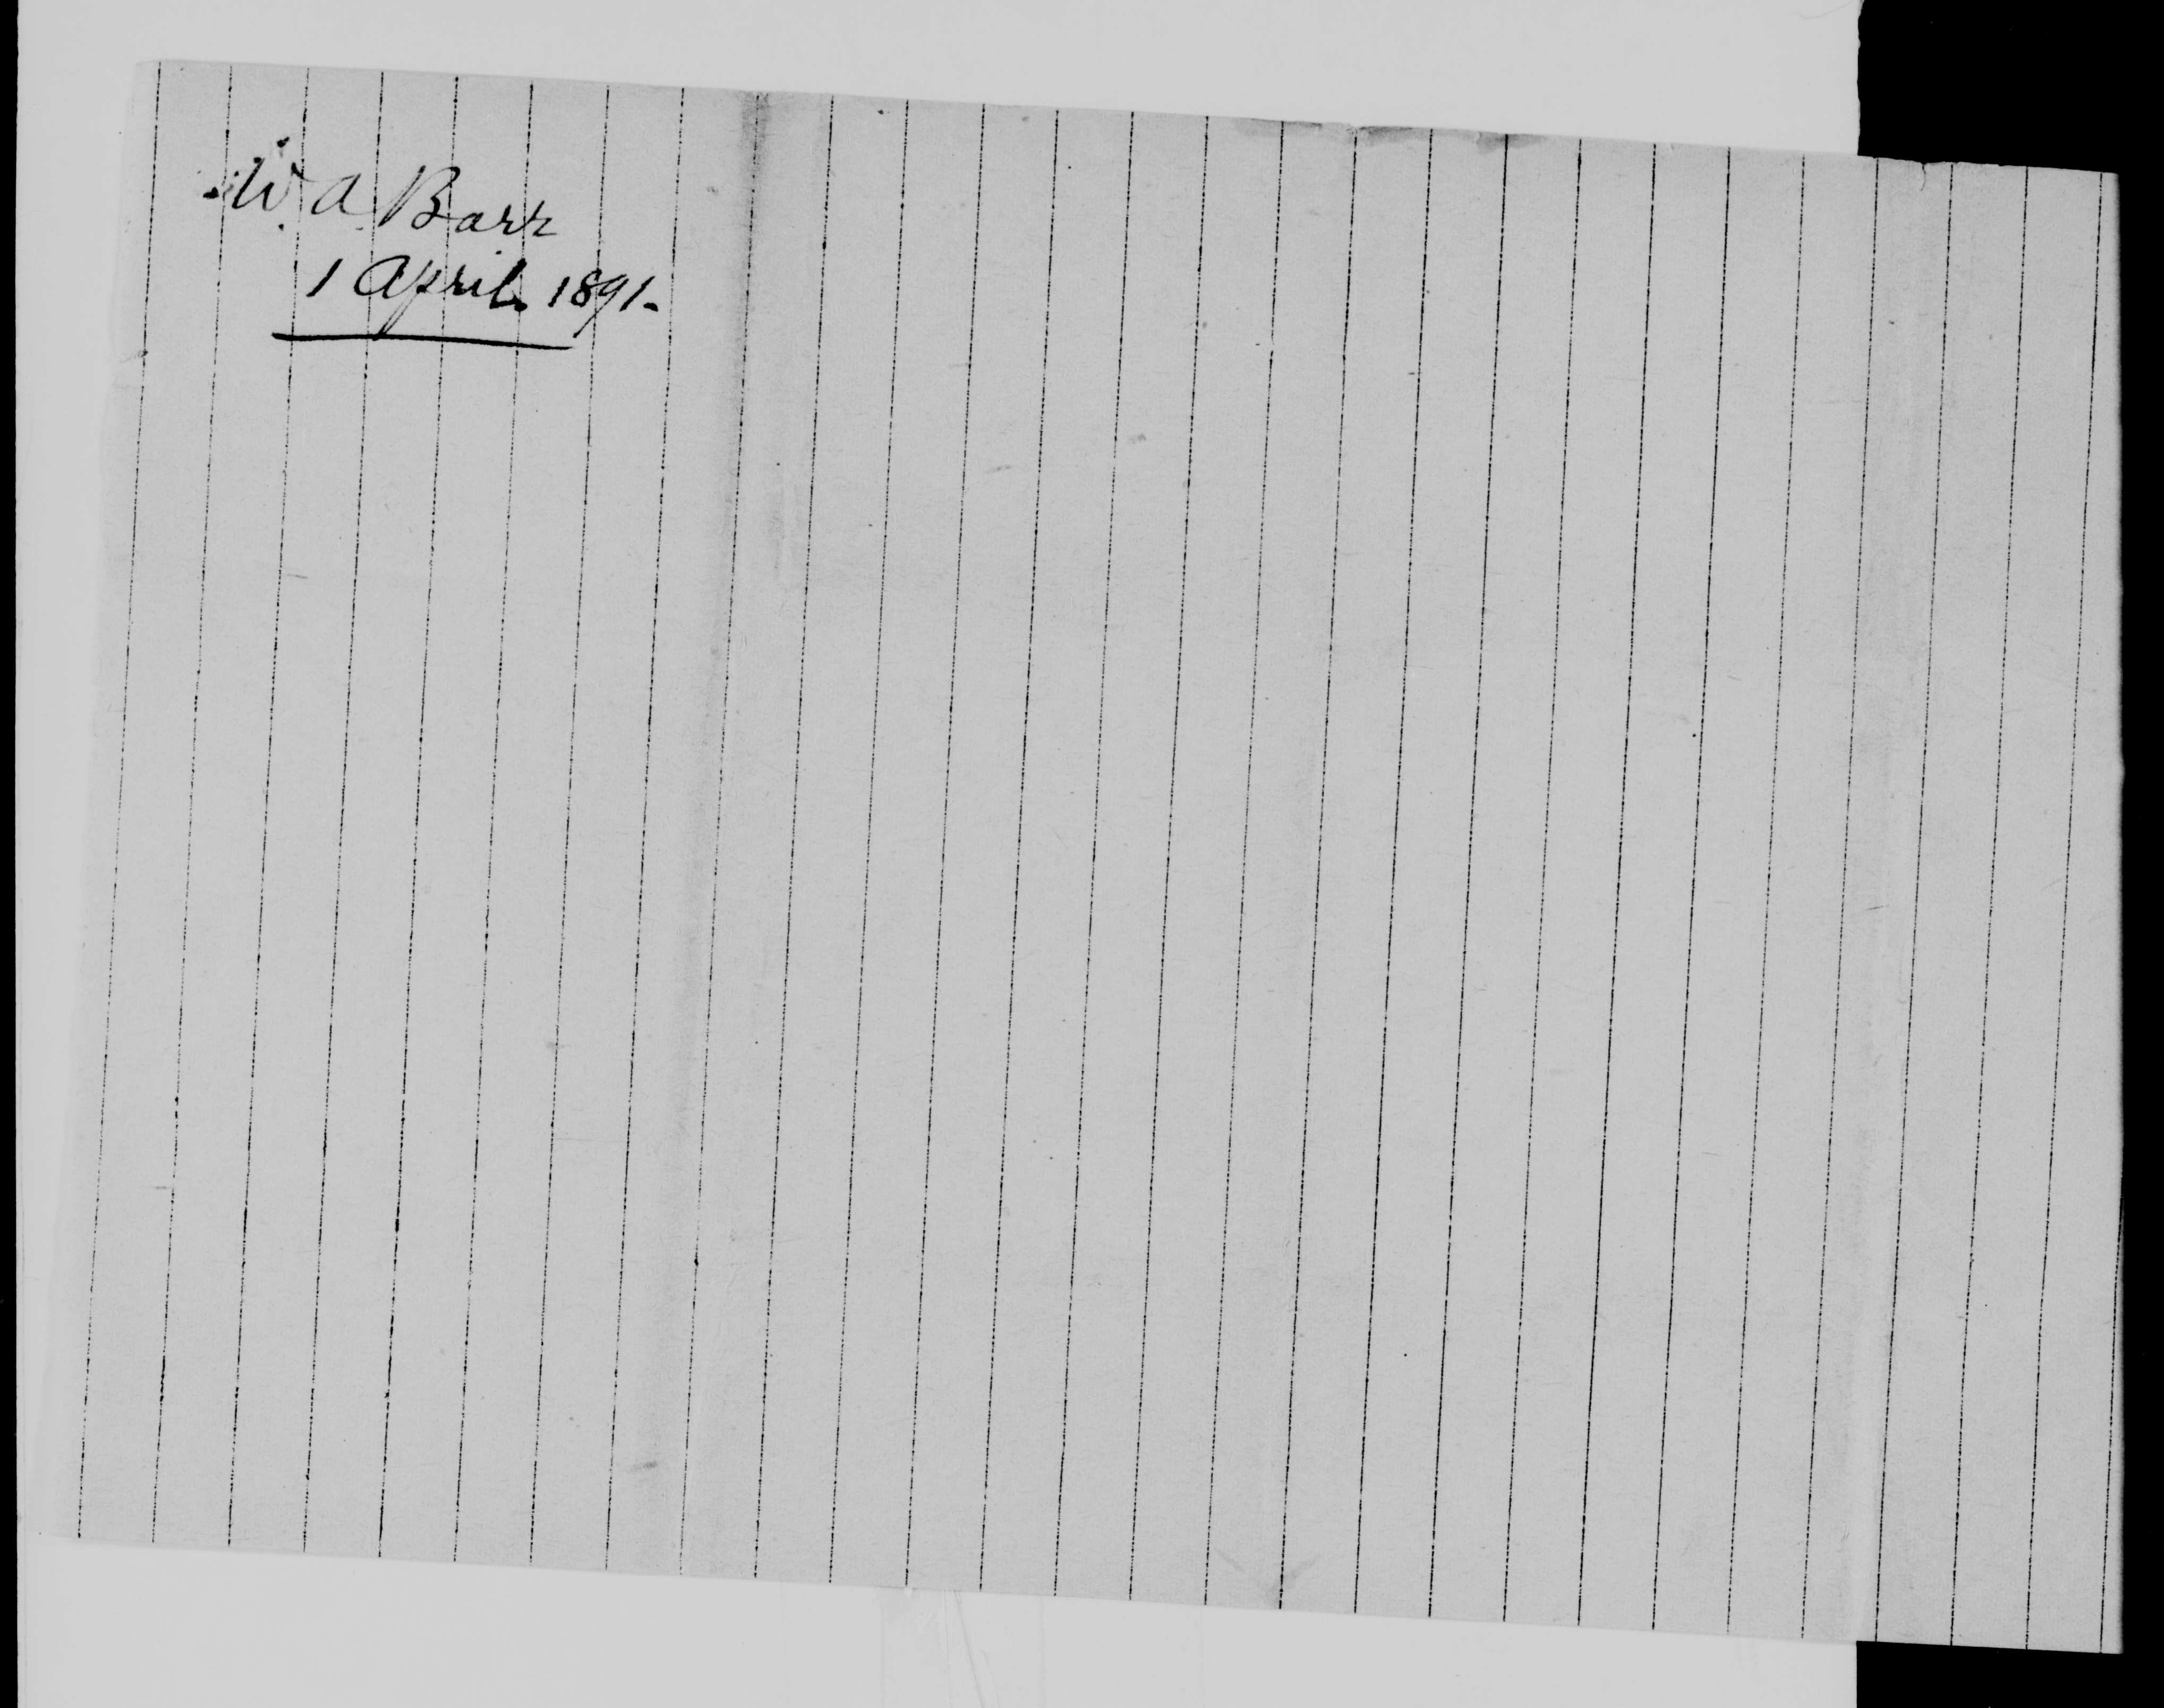 W. A. Barr
1 April. 1891-